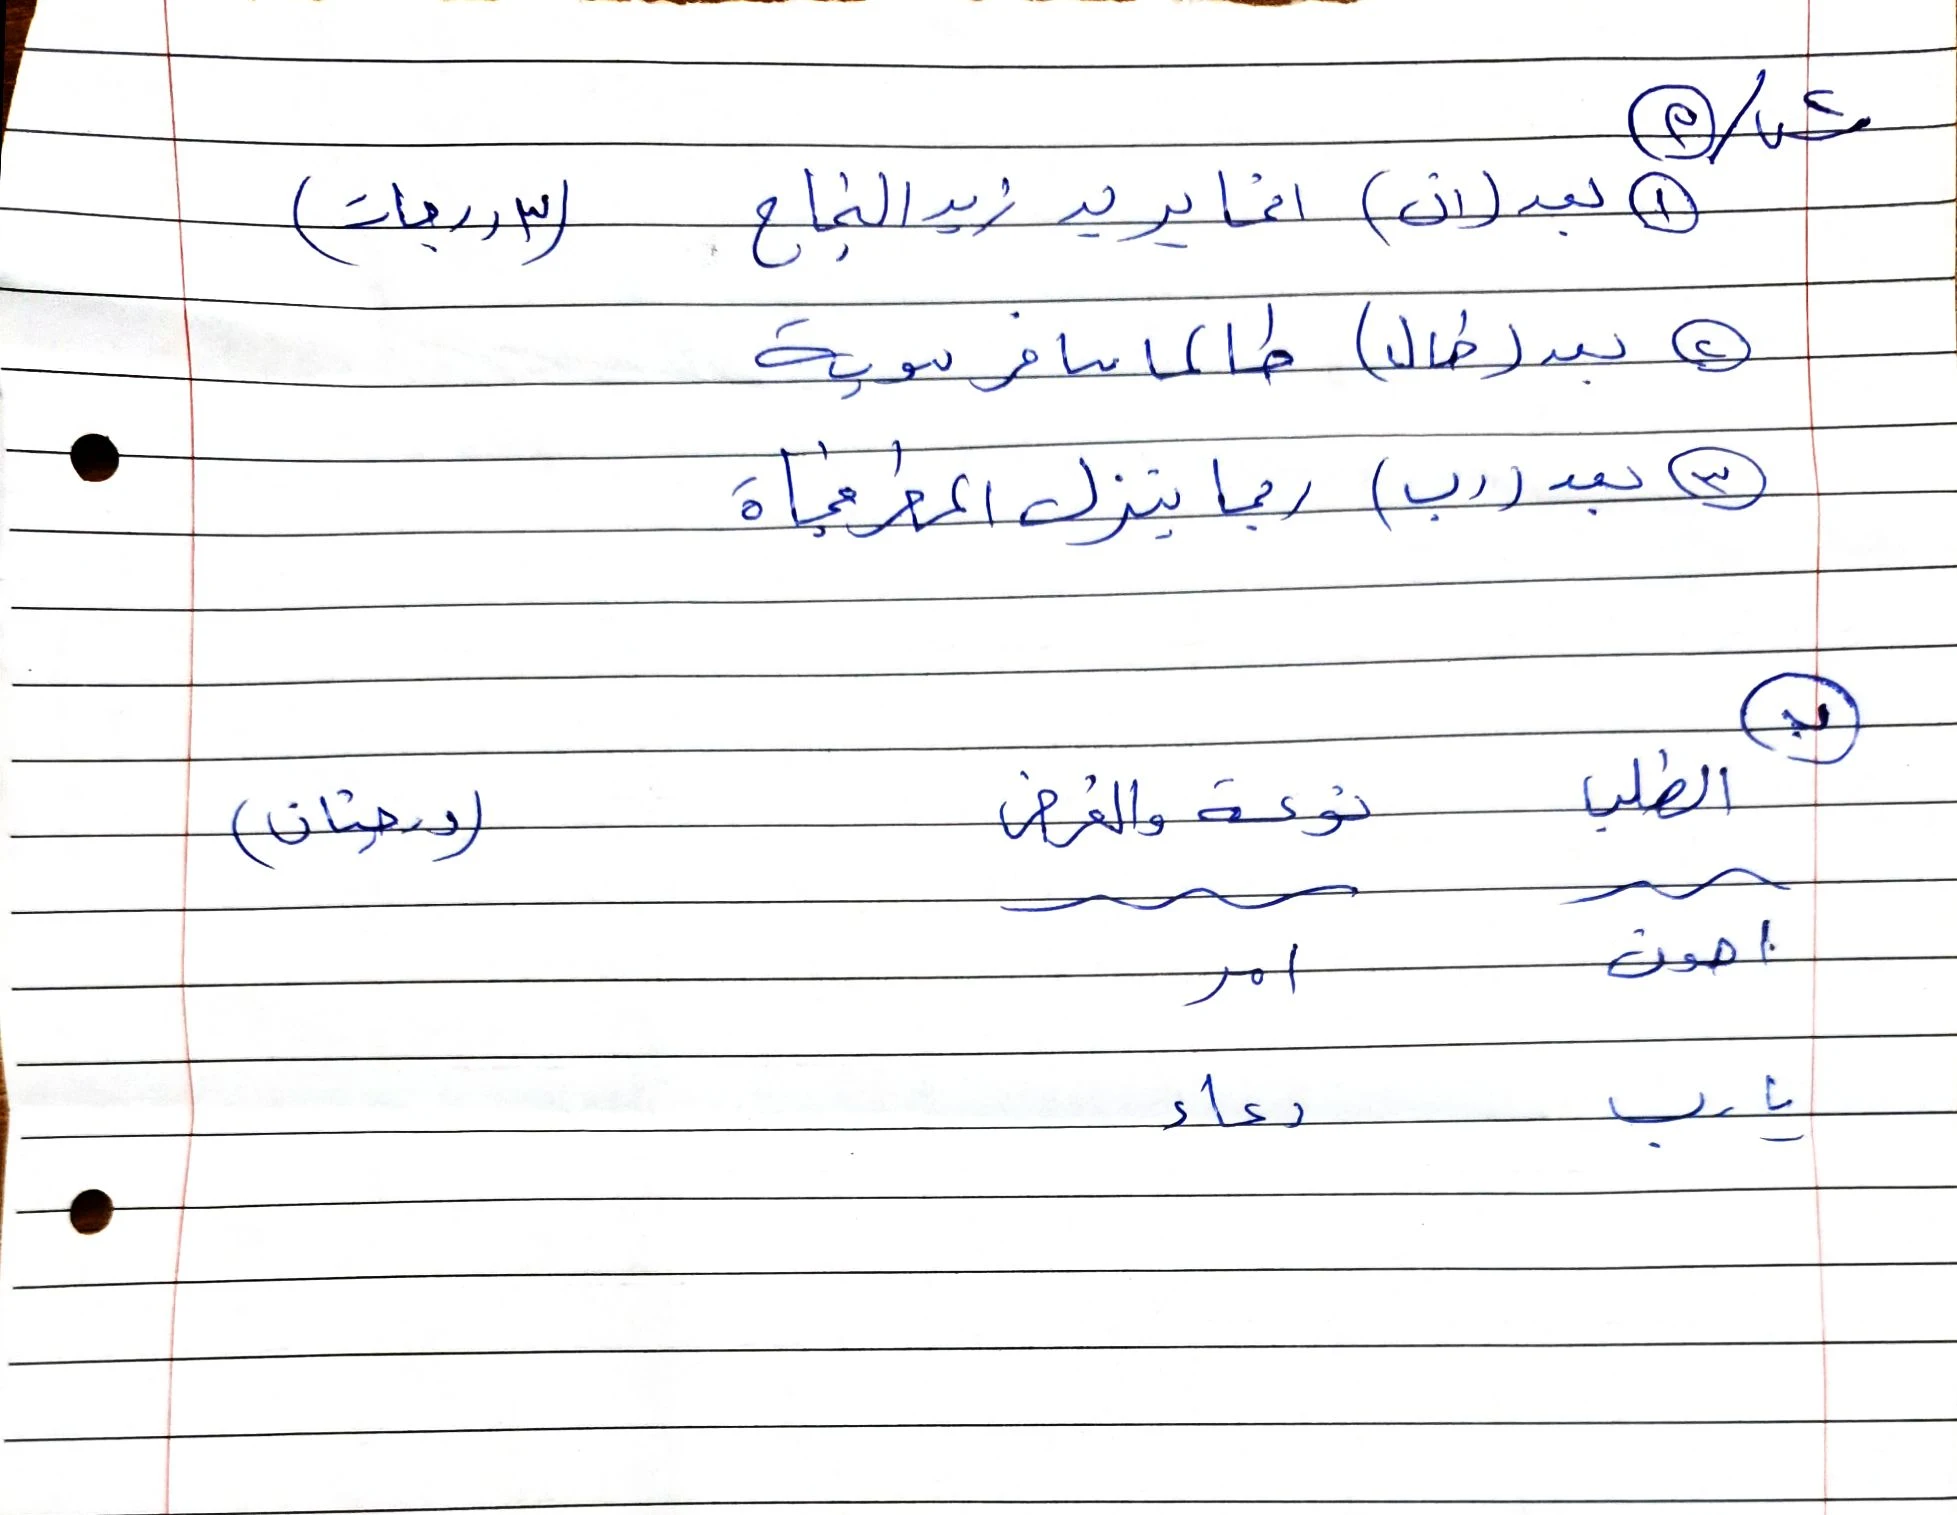 ١ بعد (ان) انما يريد زيد النجاح (٣ درجات)
٢ بعد (طال) طالما سافر سوية
٣ بعد (رب) ربما ينزل المطر فجأة
ب
الطلب نوعة والغرض (درجتان)
امر
يارب دعاء